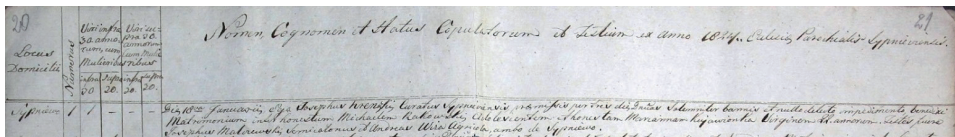 20
21
Nomen, Cognomen et Status Copulatorum et Testium ex anno 1844. Ecclesiæ Parochialis Sypnieviensis.
Locus Domicilii
Numerus
Viri infra 30 annorum, cum Mulieribus
Viri supra 30 annorum cum Mulieribus
infra 20
supra 20.
infra 20.
supra 20.
Sypniewo 1 1 - - - Die 18va Januarii, Ego Josephus Curatus Sypnieviensis, præmissis per tres dies bannis et nullo detecto impedimento, benedixi
Matrimonium inter honestum Michaelem Rakowski Adolescentem et honestam Mariannam Virginem annorum. Testes fuere
Josephus Makowski et Andreas Agricola, ambo de Sypniewo.